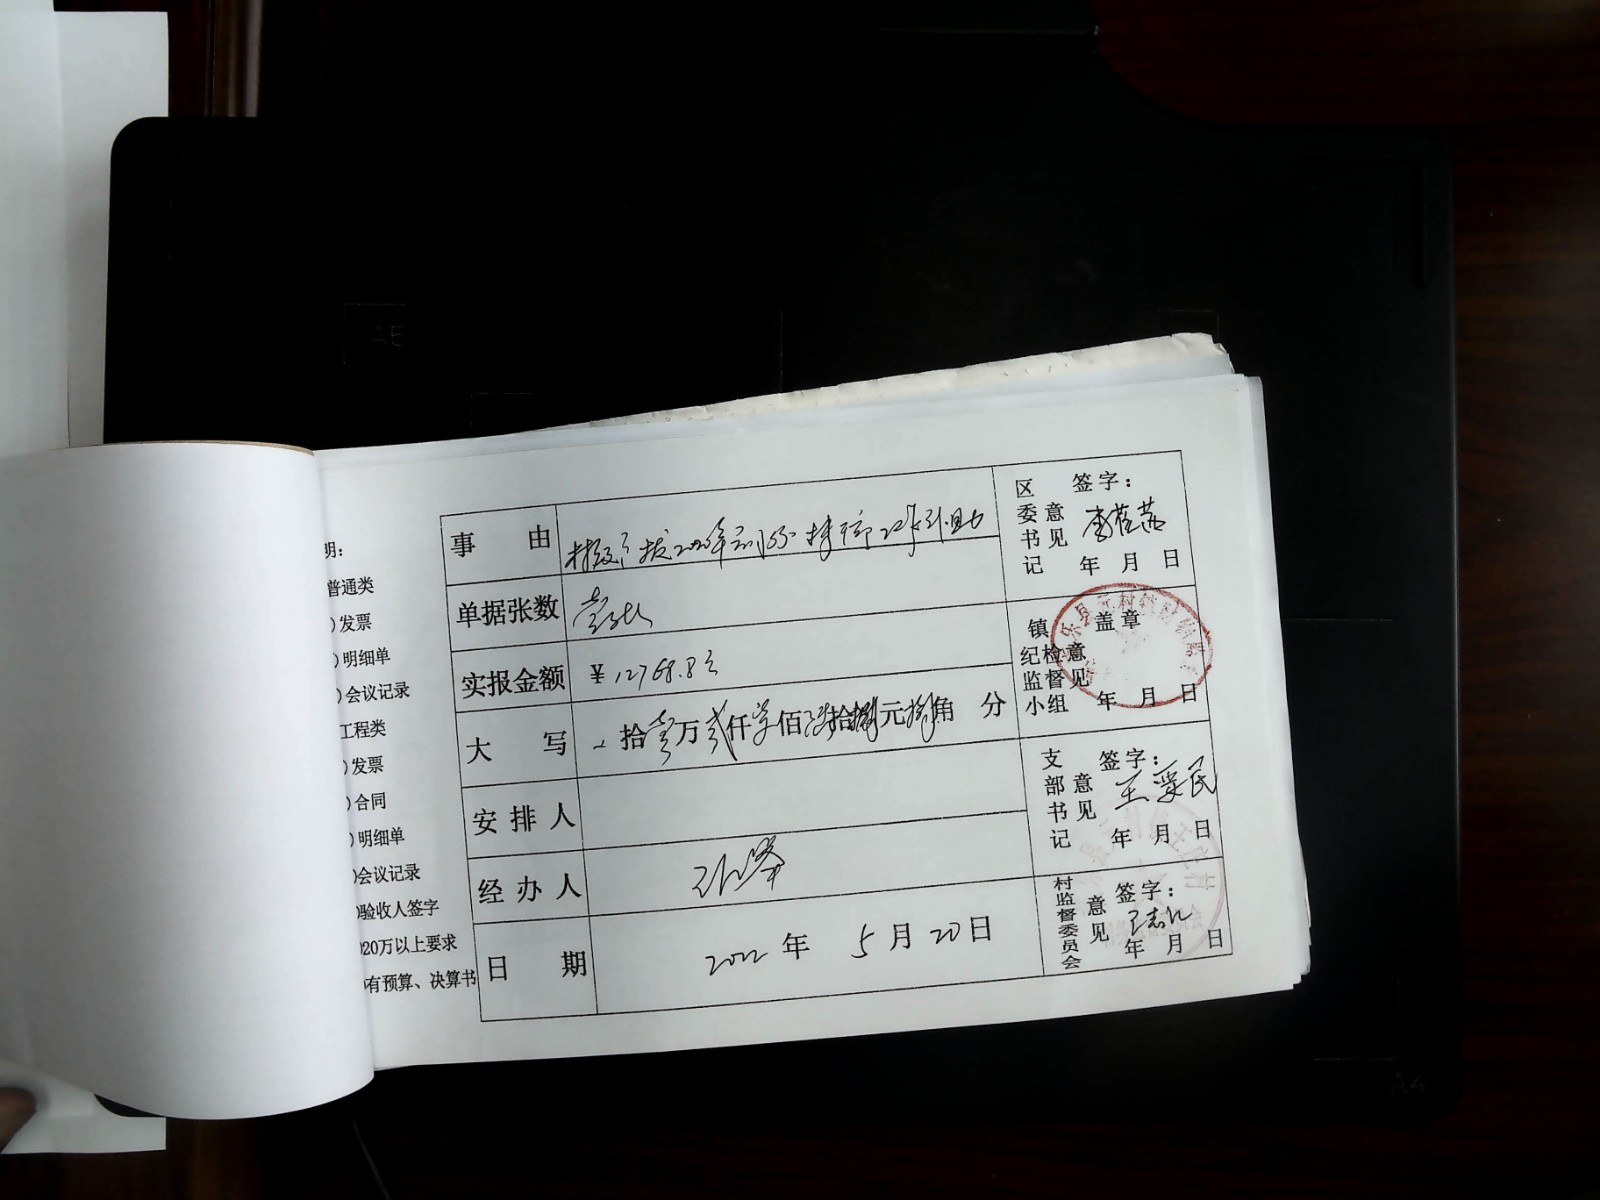 明：
普通类
)发票
)明细单
)会议记录
工程类
)发票
)合同
)明细单
)会议记录
)验收人签字
)20万以上要求
)有预算、决算书
事由
单据张数 壹张
实报金额 ￥12768.8元
大写 拾壹万贰仟柒佰陆拾捌元捌角 分
安排人
经办人
日期 2022年5月20日
区委书记意见 签字：
年 月 日
镇纪检监督小组意见 盖章
年 月 日
支部书记意见 签字：
年 月 日
村监督委员会意见 签字：
年 月 日
A5
A4